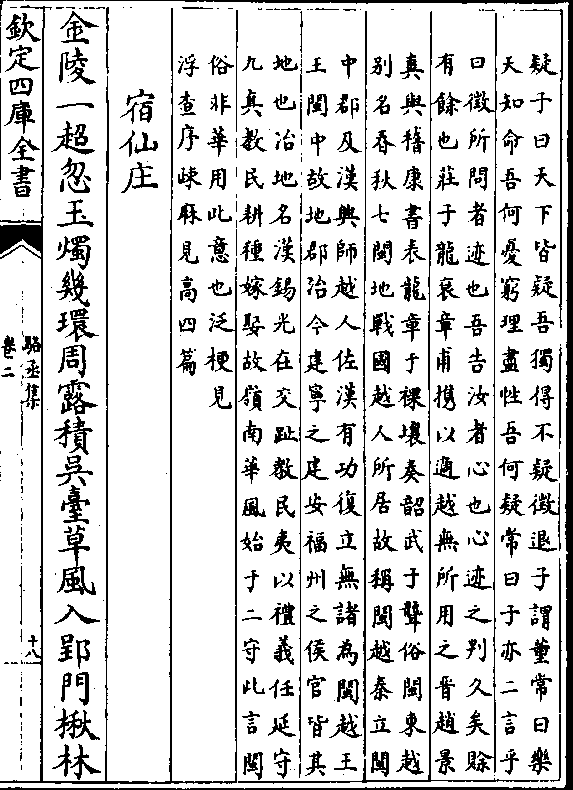 疑子曰天下皆疑吾獨得不疑徴退子謂董常曰樂
天知命吾何憂窮理盡性吾何疑常曰子亦二言乎
曰徴所問者迹也吾告汝者心也心迹之判久矣賖
有餘也莊子龍衮章甫携以適越無所用之晉趙景
真與稽康書表龍章于裸壤奏韶武于聾俗閩東越
别名春秋七閩地戰國越人所居故稱閩越秦立閩
中郡及漢興師越人佐漢有功復立無諸為閩越王
王閩中故地郡治今建寧之建安福州之侯官皆其
地也冶地名漢錫光在交趾教民夷以禮義任延守
九真教民耕種嫁娶故嶺南華風始于二守此言閩
俗非華用此意也泛梗見
浮查序疎麻見高四篇
宿仙庄
金陵一超忽玉燭幾環周露積吳臺草風入郢門楸林
欽定四庫全書
駱丞集
卷二
十八